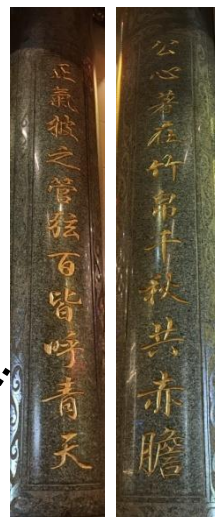 公心著在竹帛千秋共赤膽
正氣被之管弦百皆呼青天